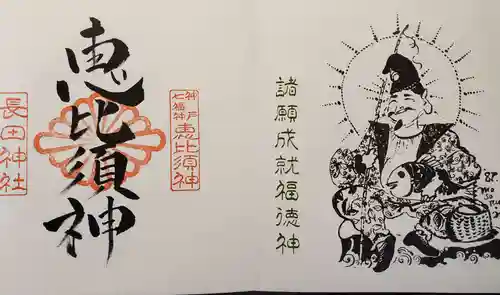 恵比須神
神戸七福神
恵比須神
長田神社
諸願成就福徳神
87.